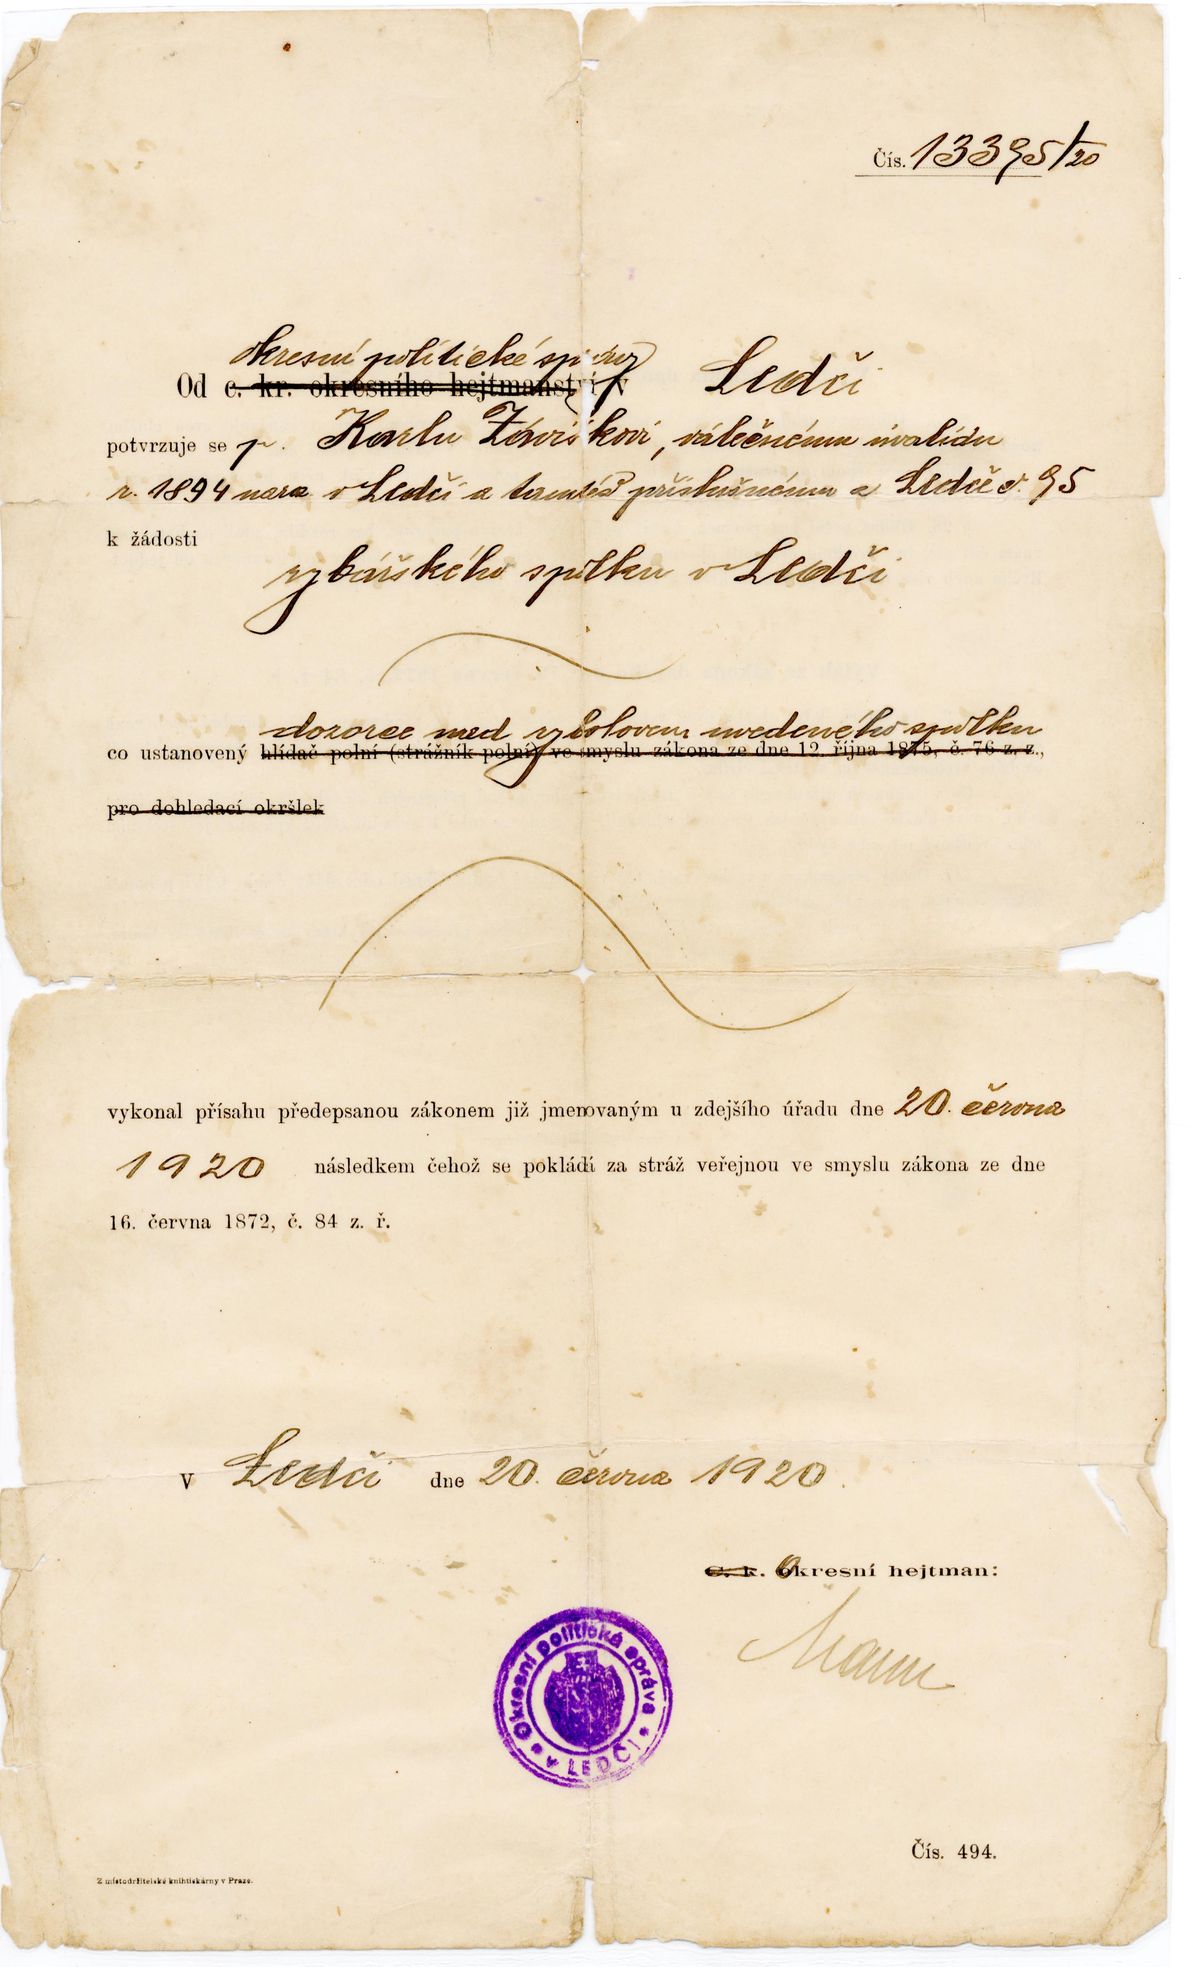 Čís. 13395/20
okresní politické správy
Od c. kr. okresního hejtmanství v Ledči
potvrzuje se p. Karlu Záviškovi, válečnému invalidu
r. 1894 naroz v Ledči a tamtéž příslušnému z Ledče č. 95
k žádosti
rybářského spolku v Ledči
dozorce nad rybolovem uvedeného spolku
co ustanovený hlídač polní (strážník polní) ve smyslu zákona ze dne 12. října 1875, č. 76 z. z.,
pro dohledací okršlek
vykonal přísahu předepsanou zákonem již jmenovaným u zdejšího úřadu dne 20. června
1920 následkem čehož se pokládá za stráž veřejnou ve smyslu zákona ze dne
16. června 1872, č. 84 z. ř.
V Ledči dne 20. června 1920.
C. k. Okresní hejtman:
Okresní politická správa
v LEDČI
Čís. 494.
Z místodržitelské knihtiskárny v Praze.